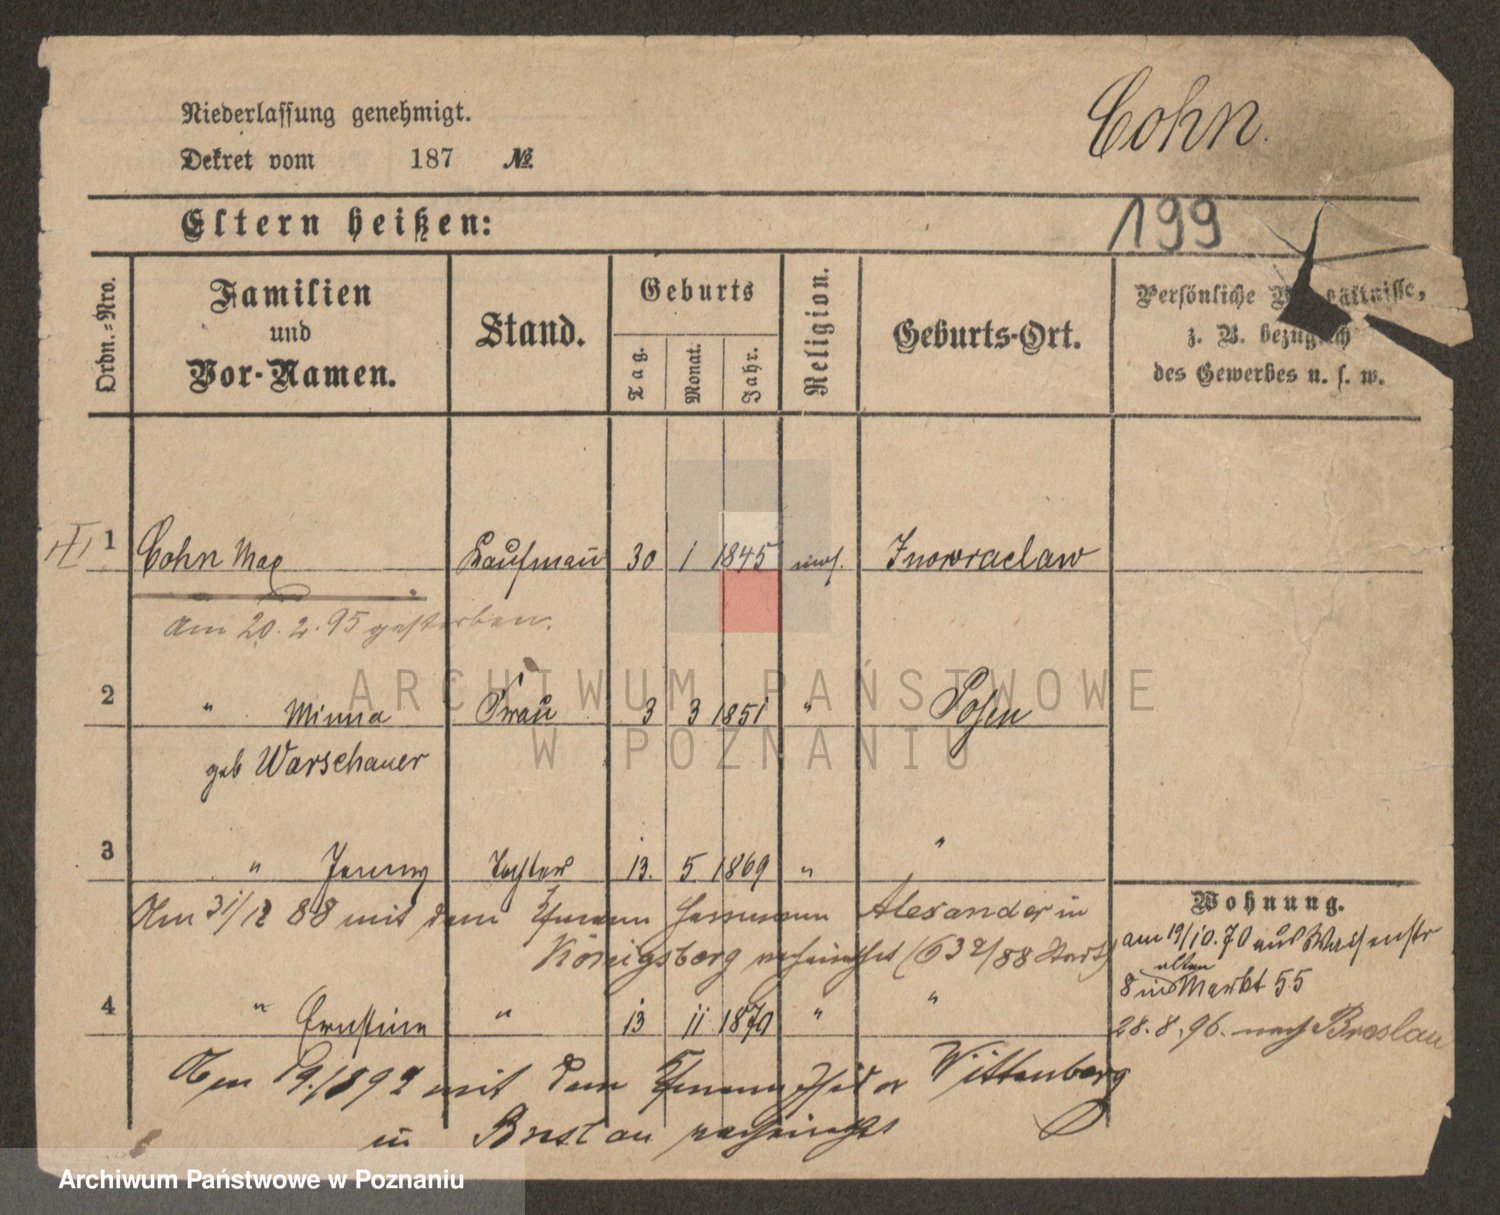 Niederlassung genehmigt.
Cohn.
Dekret vom 187 №
Eltern heißen:
199
Ordn.=Nro.
Familien
und
Vor-Namen.
Stand.
Geburts
Tag.
Monat.
Jahr.
Religion.
Geburts-Ort.
Persönliche
z. B.
des Gewerbes u. s. w.
1 Cohn Max Kaufmann 30 1 1845 mos. Inowraclaw
Am 20.2.95 gestorben.
2 " Minna Frau 3 3 1851 " Posen
geb Warschauer
3 " Jenny Tochter 13. 5. 1869 " "
Am 31/12 88 mit dem Alexander in
Königsberg verheirathet (632/88
Wohnung.
am 19/10.70 aus Waisenstr
8 in alten Markt 55
4 " Ernestine " 13 11 1870 " "
28.8.96. nach Breslau
Am 19./1892 mit dem Wittenberg
in Breslau verheirathet
ARCHIWUM PAŃSTWOWE
W POZNANIU
Archiwum Państwowe w Poznaniu